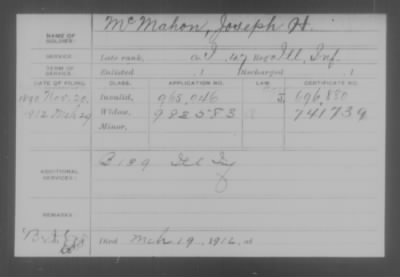 NAME OF SOLDIER: McMahon, Joseph H.
SERVICE: Late rank, Co. I, 47 Reg't Ill. Inf.
TERM OF SERVICE: Enlisted , 1 Discharged , 1
DATE OF FILING. CLASS. APPLICATION NO. LAW. CERTIFICATE NO.
1890 Nov. 20, Invalid, 965,046 696,830
1912 Mch 29 Widow, 982583 741739
Minor,
ADDITIONAL SERVICES: B 139 Ill Inf
REMARKS:
Died Mch 19, 1912, at